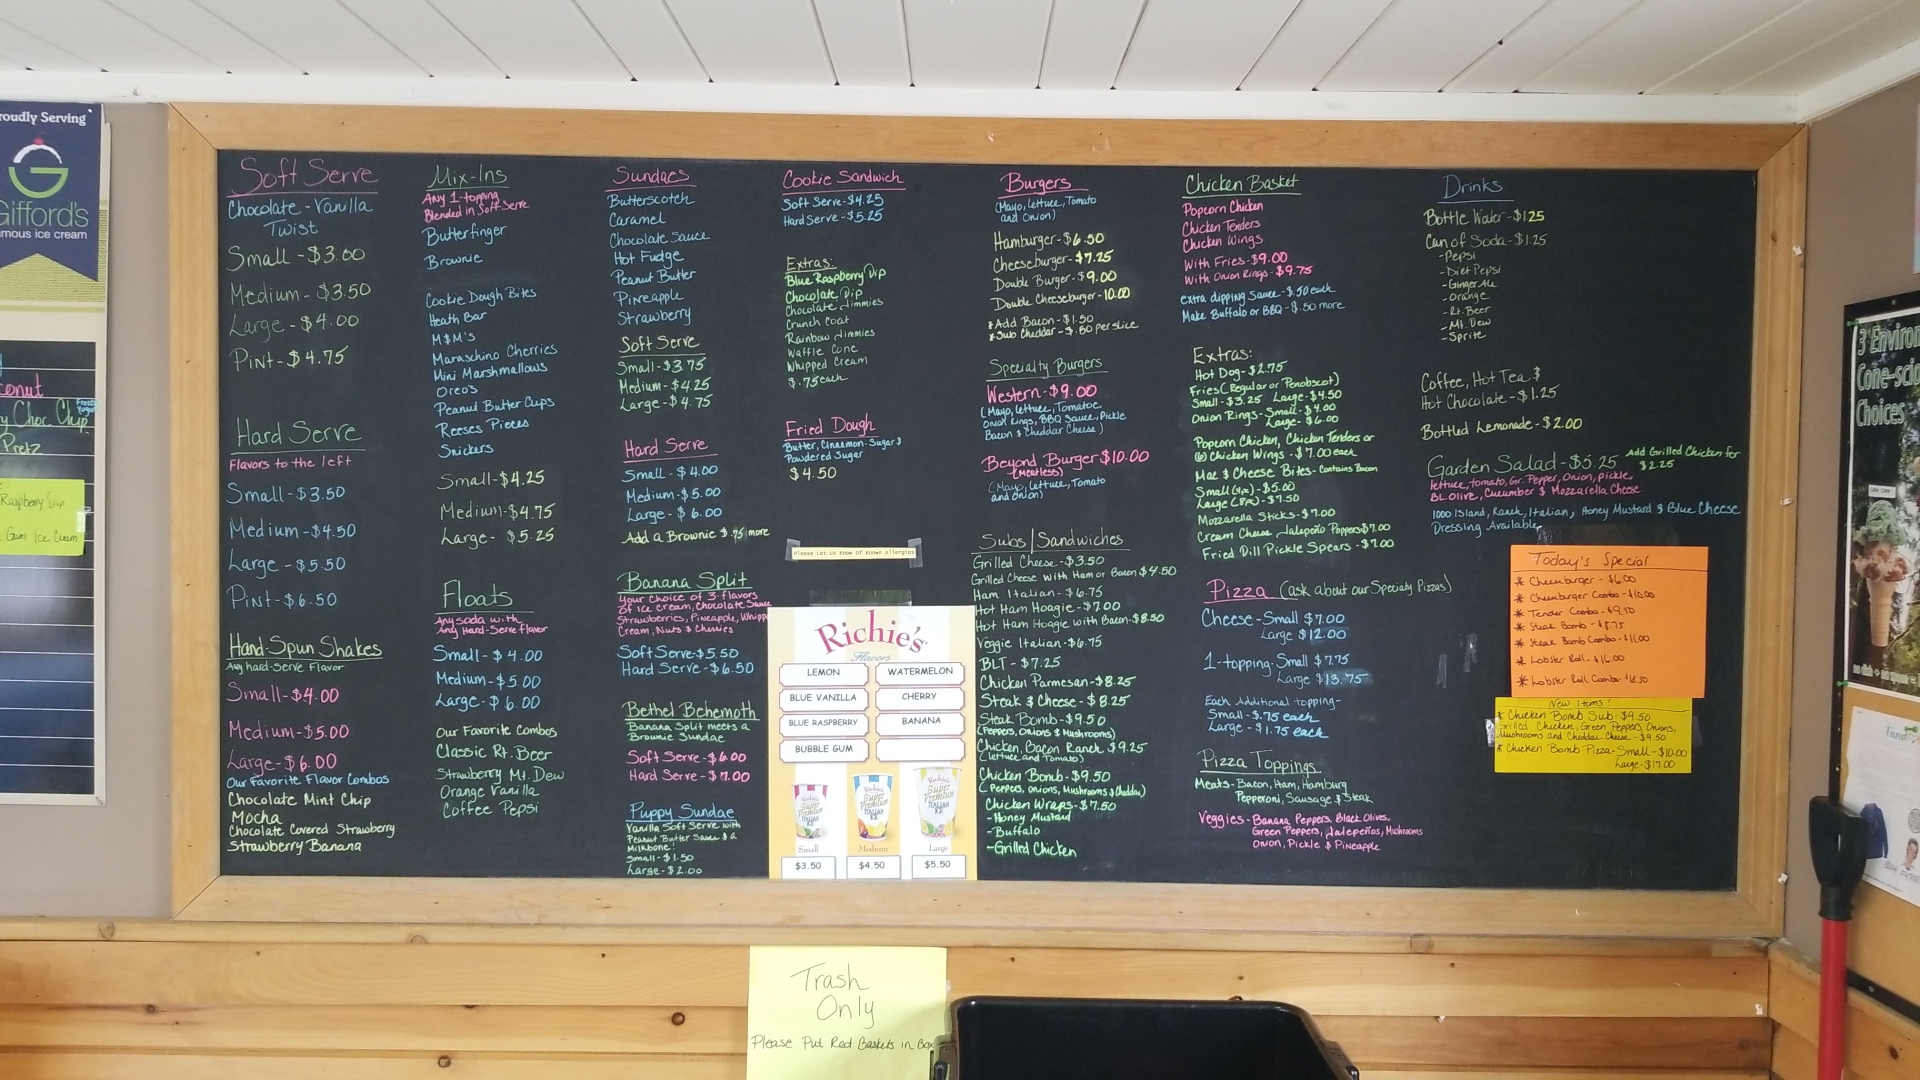 Proudly Serving
Gifford's
famous ice cream
Choc Chip
Pretz
Raspberry Dip
Gum Ice Cream
Soft Serve
Chocolate - Vanilla
Twist
Small - $3.00
Medium - $3.50
Large - $4.00
Pint - $4.75
Hard Serve
Flavors to the left
Small - $3.50
Medium - $4.50
Large - $5.50
Pint - $6.50
Hand-Spun Shakes
Any hard-Serve Flavor
Small - $4.00
Medium - $5.00
Large - $6.00
Our Favorite Flavor Combos
Chocolate Mint Chip
Mocha
Chocolate Covered Strawberry
Strawberry Banana
Mix-Ins
Any 1-topping
Blended in Soft Serve
Butterfinger
Brownie
Cookie Dough Bites
Heath Bar
M$M's
Maraschino Cherries
Mini Marshmallows
Oreo's
Peanut Butter Cups
Reeses Pieces
Snickers
Small - $4.25
Medium - $4.75
Large - $5.25
Floats
Any soda with
Any Hard-Serve flavor
Small - $4.00
Medium - $5.00
Large - $6.00
Our Favorite Combos
Classic Rt. Beer
Strawberry Mt. Dew
Orange Vanilla
Coffee Pepsi
Sundaes
Butterscotch
Caramel
Chocolate Sauce
Hot Fudge
Peanut Butter
Pineapple
Strawberry
Soft Serve
Small - $3.75
Medium - $4.25
Large - $4.75
Hard Serve
Small - $4.00
Medium - $5.00
Large - $6.00
Add a Brownie $.75 more
Banana Split
Your Choice of 3 flavors
of Ice cream, Chocolate Sauce
Strawberries, Pineapple, Whipp
Cream, Nuts $ Cherries
Soft Serve - $5.50
Hard Serve - $6.50
Bethel Behemoth
Banana Split meets a
Brownie Sundae
Soft Serve - $6.00
Hard Serve - $7.00
Puppy Sundae
Vanilla Soft Serve with
Peanut Butter Sauce $ a
Milkbone!
Small - $1.50
Large - $2.00
Cookie Sandwich
Soft Serve - $4.25
Hard Serve - $5.25
Extras:
Blue Raspberry Dip
Chocolate Dip
Chocolate Jimmies
Crunch Coat
Rainbow Jimmies
Waffle Cone
Whipped Cream
$.75 each
Fried Dough
Butter, Cinnamon-Sugar $
Powdered Sugar
$4.50
Please Let Us Know of Known Allergies
Richie's
Flavors
LEMON WATERMELON
BLUE VANILLA CHERRY
BLUE RASPBERRY BANANA
BUBBLE GUM
Richie's Super Premium ITALIAN ICE
Small Medium Large
$3.50 $4.50 $5.50
Burgers
(Mayo, Lettuce, Tomato
and Onion)
Hamburger - $6.50
Cheeseburger - $7.25
Double Burger - $9.00
Double Cheeseburger - 10.00
*Add Bacon - $1.50
*Sub Cheddar - $.60 per slice
Specialty Burgers
Western - $9.00
(Mayo, Lettuce, Tomatoe,
Onion Rings, BBQ Sauce, Pickle
Bacon $ Cheddar Cheese)
Beyond Burger $10.00
(Meatless)
(Mayo, Lettuce, Tomato
and Onion)
Subs/Sandwiches
Grilled Cheese - $3.50
Grilled Cheese With Ham or Bacon $4.50
Ham Italian - $6.75
Hot Ham Hoagie - $7.00
Hot Ham Hoagie with Bacon - $8.50
Veggie Italian - $6.75
BLT - $7.25
Chicken Parmesan - $8.25
Steak & Cheese - $8.25
Steak Bomb - $9.50
(Peppers, Onions $ Mushrooms)
Chicken, Bacon Ranch $9.25
(Lettuce and Tomato)
Chicken Bomb - $9.50
(Peppers, Onions, Mushrooms $ Cheddar)
Chicken Wraps - $7.50
- Honey Mustard
- Buffalo
- Grilled Chicken
Chicken Basket
Popcorn Chicken
Chicken Tenders
Chicken Wings
With Fries - $9.00
With Onion Rings - $9.75
Extra dipping Sauce - $.50 each
Make Buffalo or BBQ - $.50 more
Extras:
Hot Dog - $2.75
Fries (Regular or Penobscot)
Small - $3.25 Large - $4.50
Onion Rings - Small - $4.00
Large - $6.00
Popcorn Chicken, Chicken Tenders or
(6) Chicken Wings - $7.00 each
Mac $ Cheese Bites - Contains Bacon
Small (4pc) - $5.00
Large (8pc) - $7.50
Mozzarella Sticks - $7.00
Cream Cheese Jalapeño Poppers $7.00
Fried Dill Pickle Spears - $7.00
Pizza (ask about our Specialty Pizzas)
Cheese - Small $7.00
Large $12.00
1-topping - Small $7.75
Large $13.75
Each Additional topping -
Small - $.75 each
Large - $1.75 each
Pizza Toppings
Meats - Bacon, Ham, Hamburg
Pepperoni, Sausage $ Steak
Veggies - Banana Peppers, Black Olives,
Green Peppers, Jalepeños, Mushrooms
Onion, Pickle $ Pineapple
Drinks
Bottle Water - $1.25
Can of Soda - $1.25
- Pepsi
- Diet Pepsi
- Ginger Ale
- Orange
- Rt. Beer
- Mt. Dew
- Sprite
Coffee, Hot Tea, $
Hot Chocolate - $1.25
Bottled Lemonade - $2.00
Garden Salad - $5.25 Add Grilled Chicken for
$2.25
lettuce, tomato, Gr. Pepper, Onion, pickle,
BL Olive, Cucumber $ Mozzarella Cheese
1000 Island, Ranch, Italian, Honey Mustard $ Blue Cheese
Dressing Available
Today's Special
* Cheeseburger - $6.00
* Cheeseburger Combo - $10.00
* Tender Combo - $9.50
* Steak Bomb - $8.75
* Steak Bomb Combo - $11.00
* Lobster Roll - $16.00
* Lobster Roll Combo - $18.50
New Items!
* Chicken Bomb Sub - $9.50
Grilled Chicken, Green Peppers, Onions,
Mushrooms and Cheddar Cheese - $9.50
* Chicken Bomb Pizza - Small - $10.00
Large - $17.00
3 Environ
Cone-scio
Choices
Trash
Only
Please Put Red Baskets in Box